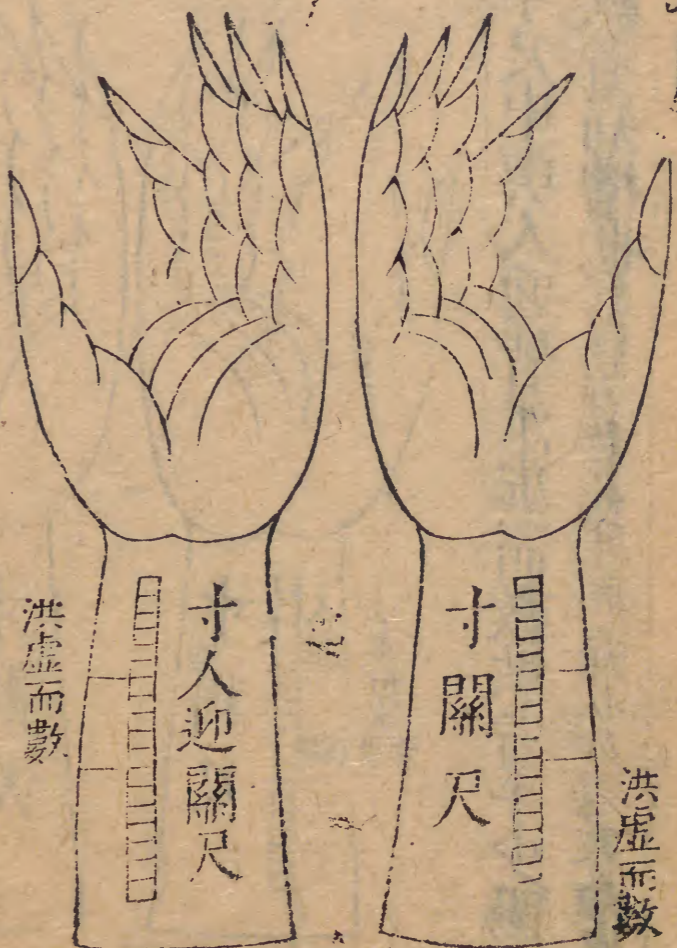 洪虛而數
寸關尺
寸人迎關尺
洪虛而數